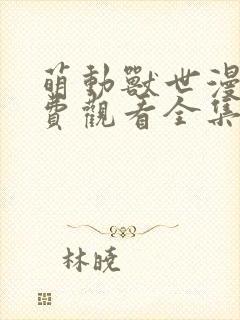 萌動獸世漫
費觀看全集
林曉